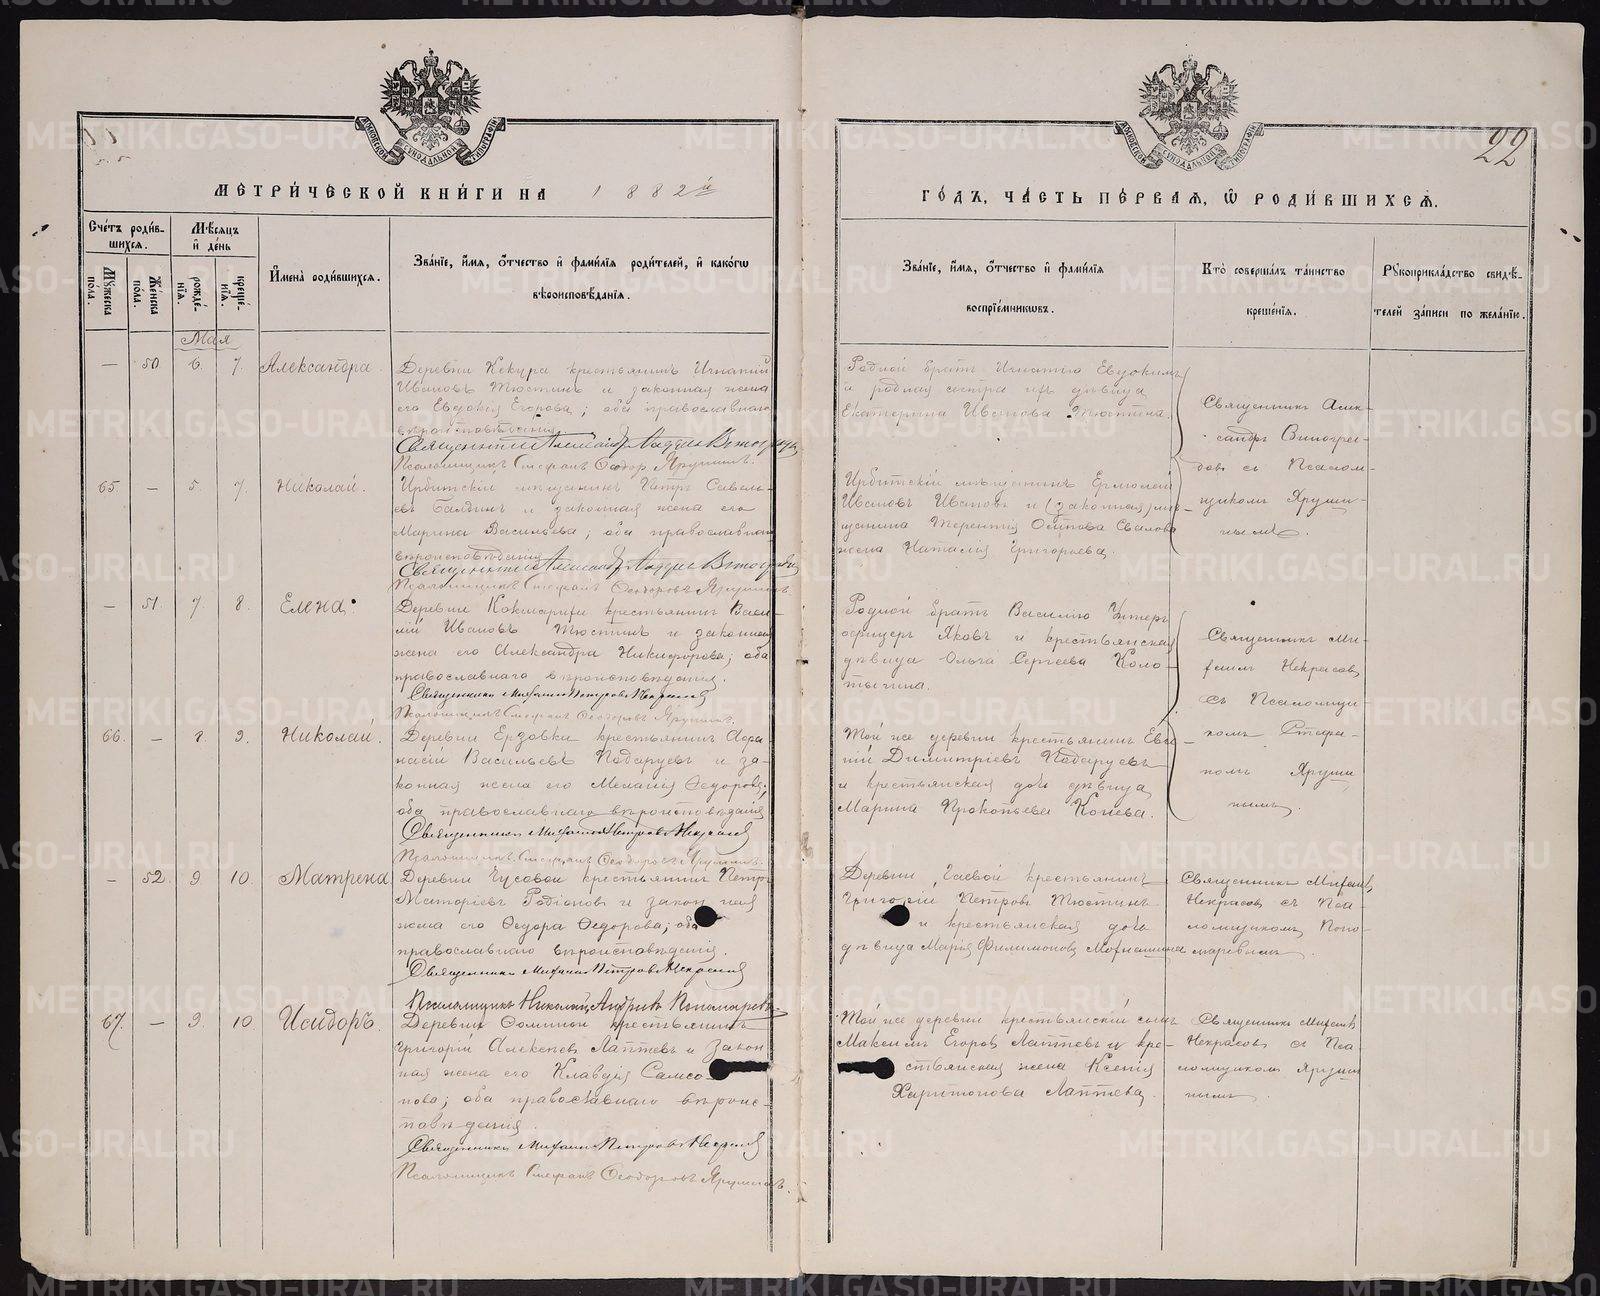 22
МОСКОВСКОЙ СѴНОДАЛЬНОЙ ТИПОГРАФІИ
МОСКОВСКОЙ СѴНОДАЛЬНОЙ ТИПОГРАФІИ
МЕТРИ́ЧЕСКОЙ КНИ́ГИ НА 1882й
ГО́ДЪ, ЧА́СТЬ ПЕ́РВАЯ, Ѡ РОДИ́ВШИХСЯ.
Сче́тъ роди́в-
шихся.
Му́жеска по́ла.
Же́нска по́ла.
Мѣ́сяцъ и҆ де́нь
рожде́-
нїя.
креще́-
нїя.
И҆мена̀ роди́вшихся.
Зва́нїе, и҆́мя, ѻ҆́тчество и҆ фами́лїя роди́телей, и҆ како́гѡ
вѣроисповѣ́данїя.
Зва́нїе, и҆́мя, ѻ҆́тчество и҆ фами́лїя
воспрїе́мниковъ.
Кто̀ соверша́лъ та́инство
креще́нїя.
Рꙋкоприкла́дство свидѣ́-
телей за́писи по жела́нїю.
Мая
— 50. 6. 7. Александра.
Деревни Кекура крестьянинъ Игнатий
Ивановъ Тюстинъ и законная жена
его Евдокія Егорова; оба православнаго
вѣроисповѣданія
Псаломщикъ Стефанъ Ѳеодор. Ярушинъ.
Родной братъ Игнатію Евдокимъ
и родная сестра ихъ дѣвица
Екатерина Иванова Тюстина.
Священникъ Алек-
сандръ Виногра-
довъ съ Псалом-
щикомъ Яруши-
нымъ.
65. — 5. 7. Николай.
Ирбитскій мѣщанинъ Петръ Савель-
евъ и законная жена его
Марина Васильева; оба православнаго
вѣроисповѣданія
Псаломщикъ Стефанъ Ѳеодоровъ Ярушинъ
Ирбитскій мѣщанинъ Ермолай
Ивановъ Ивановъ и (законная) мѣ-
щанина Терентія Осипова
жена Наталія Григорьева.
— 51. 7. 8. Елена.
Деревни крестьянинъ Васи-
лій Ивановъ Тюстинъ и законная
жена его Александра Никифорова; оба
православнаго вѣроисповѣданія.
Священникъ Михаилъ Петровъ Некрасовъ
Псаломщикъ Стефанъ Ѳеодоровъ Ярушинъ.
Родной братъ Василію Унтеръ
офицеръ Яковъ и крестьянская
дѣвица Ольга Сергеева Коло-
тыгина.
Священникъ Ми-
хаилъ Некрасовъ
съ Псаломщи-
комъ Стефа-
номъ Яруши
нымъ.
66. — 8. 9. Николай.
Деревни Ерзовки крестьянинъ Афа
насій Васильевъ Подаруевъ и за-
конная жена его Меланія Ѳедорова;
оба православнаго вѣроисповѣданія
Священникъ Михаилъ Петровъ Некрасовъ
Псаломщикъ Стефанъ Ѳеодоровъ Ярушинъ.
Той же деревни крестьянинъ
Димитріевъ Подаруевъ
и крестьянская дочь дѣвица
Марина Прокопьева Конева.
— 52. 9. 10. Матрена
Деревни Чусовой крестьянинъ Петръ
Родіоновъ и закон ная
жена его Ѳедора Ѳедорова; оба
православнаго вѣроисповѣданія.
Священникъ Михаилъ Петровъ Некрасовъ
Псаломщикъ Николай Андреевъ Пономаревъ.
Деревни Гаевой крестьянинъ
Григорій Петровъ Тюстинъ
и крестьянская дочь
дѣвица Марія Филимонова
Священникъ Михаилъ
Некрасовъ съ Пса-
ломщикомъ Поно-
маревымъ.
67. — 9. 10. Исидоръ.
Деревни Ѳоминой крестьянинъ
Григорій Алексѣевъ Лаптевъ и закон
ная жена его Клавдія Самсо-
нова; оба православнаго вѣроис-
повѣданія.
Священникъ Михаилъ Петровъ Некрасовъ
Псаломщикъ Стефанъ Ѳеодоровъ Ярушинъ.
Той же деревни крестьянскій сынъ
Максимъ Егоровъ Лаптевъ и кре-
стьянская жена Ксенія
Харитонова Лаптева.
Священникъ Михаилъ
Некрасовъ съ Пса
ломщикомъ Яруши
нымъ
METRIKI.GASO-URAL.RU